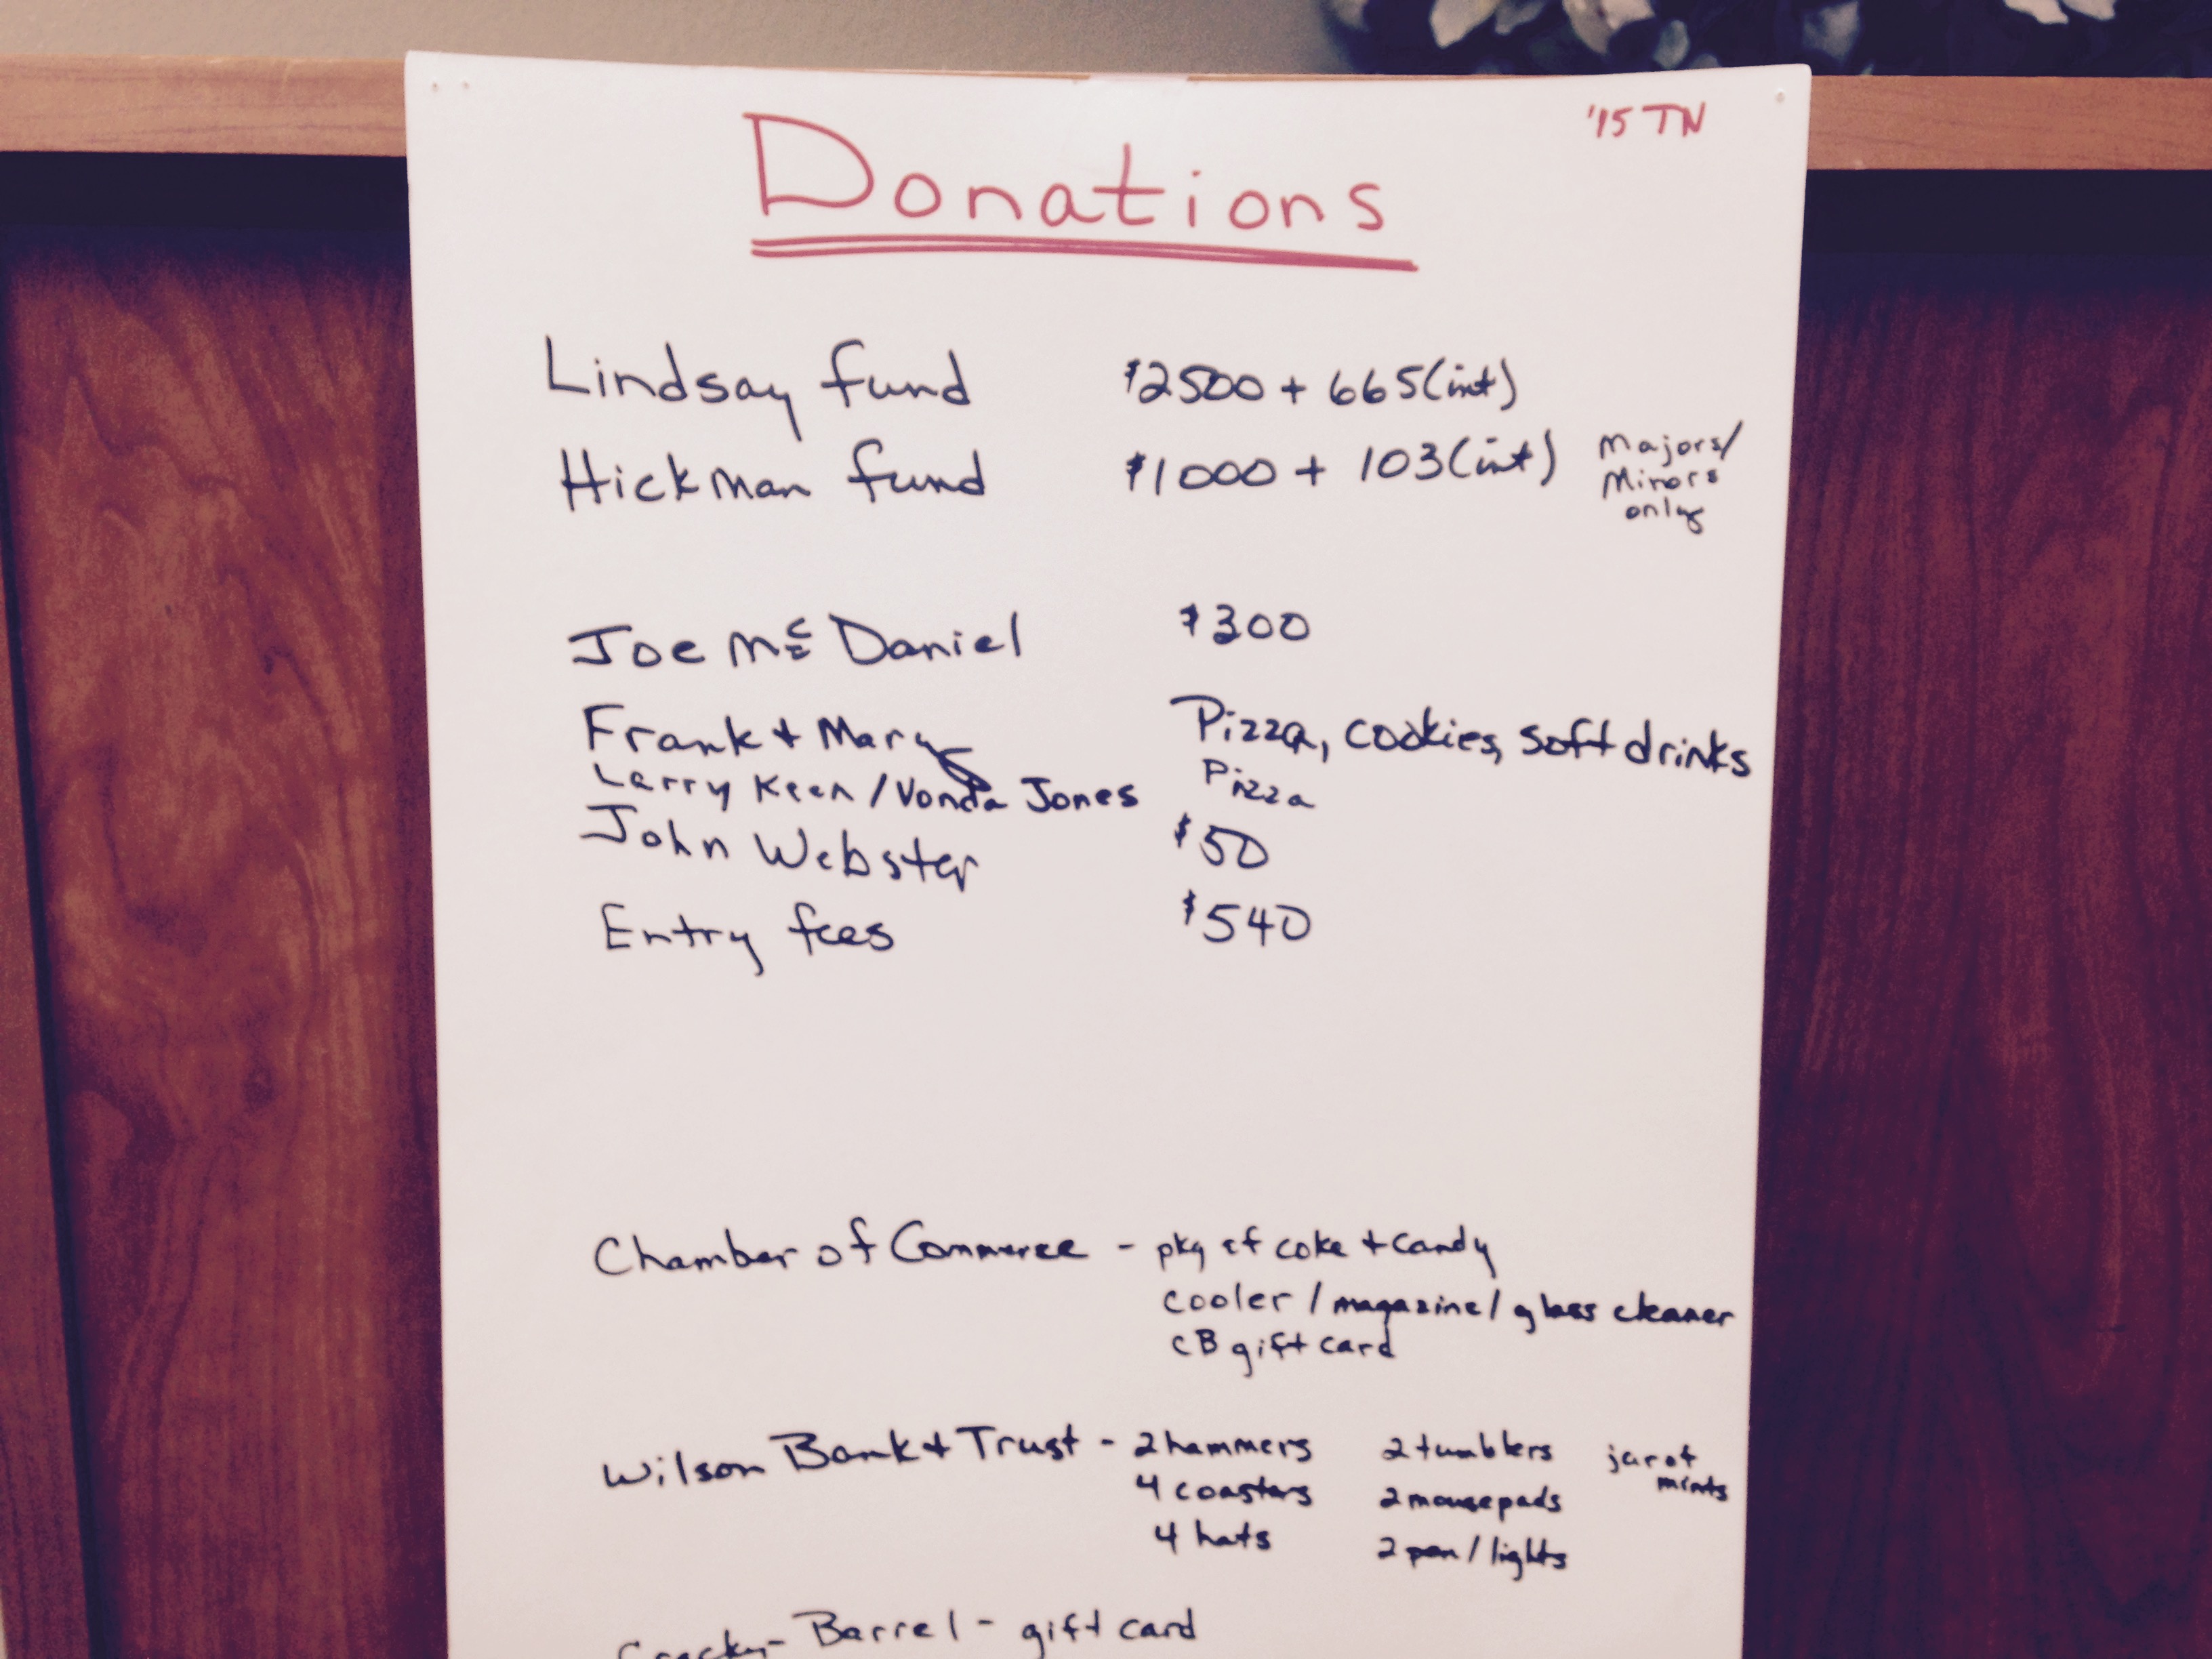 '15 TN
Donations
Lindsay fund $2500 + 665(int)
Hickman fund $1000 + 103(int) Majors/
Minors
only
Joe Mc Daniel $300
Frank + Mary Pizza, cookies, soft drinks
Larry Keen / Vonda Jones Pizza
John Webster $50
Entry fees $540
Chamber of Commerce - pkg of coke + candy
cooler / magazine / glass cleaner
CB gift card
Wilson Bank + Trust - 2 hammers 2 tumblers jar of
mints
4 coasters 2 mousepads
4 hats 2 pen / lights
Barrel - gift card